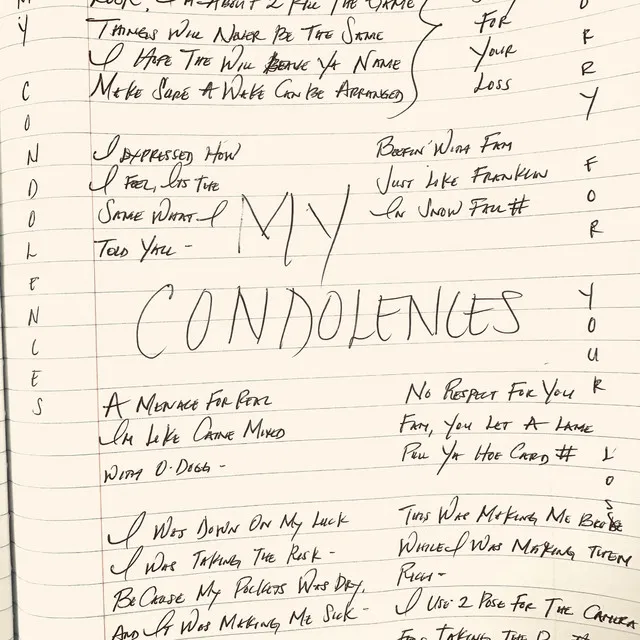 M
Y
C
O
N
D
O
L
E
N
C
E
S
I'm About 2 Kill The Game
Things Will Never Be The Same
I Hope The Will Leave Ya Name
Make Sure A Wake Can Be Arranged
For
Your
Loss
I Expressed How
I Feel, Its The
Same What I
Told Yall -
Beefin' With Fam
Just Like Franklin
In Snow Fall #
MY
CONDOLENCES
A Menace For Real
Im Like Caine Mixed
With O-Dogg -
No Respect For You
Fam, You Let A Lame
Pull Ya Hoe Card #
I Was Down On My Luck
I Was Taking The Risk -
Because My Pockets Was Dry,
And It Was Making Me Sick -
This Was Making Me
While I Was Making Them
Rich -
I Use 2 Pose For The Camera
For Taking The
O
R
R
Y
F
O
R
Y
O
U
R
L
O
S
S